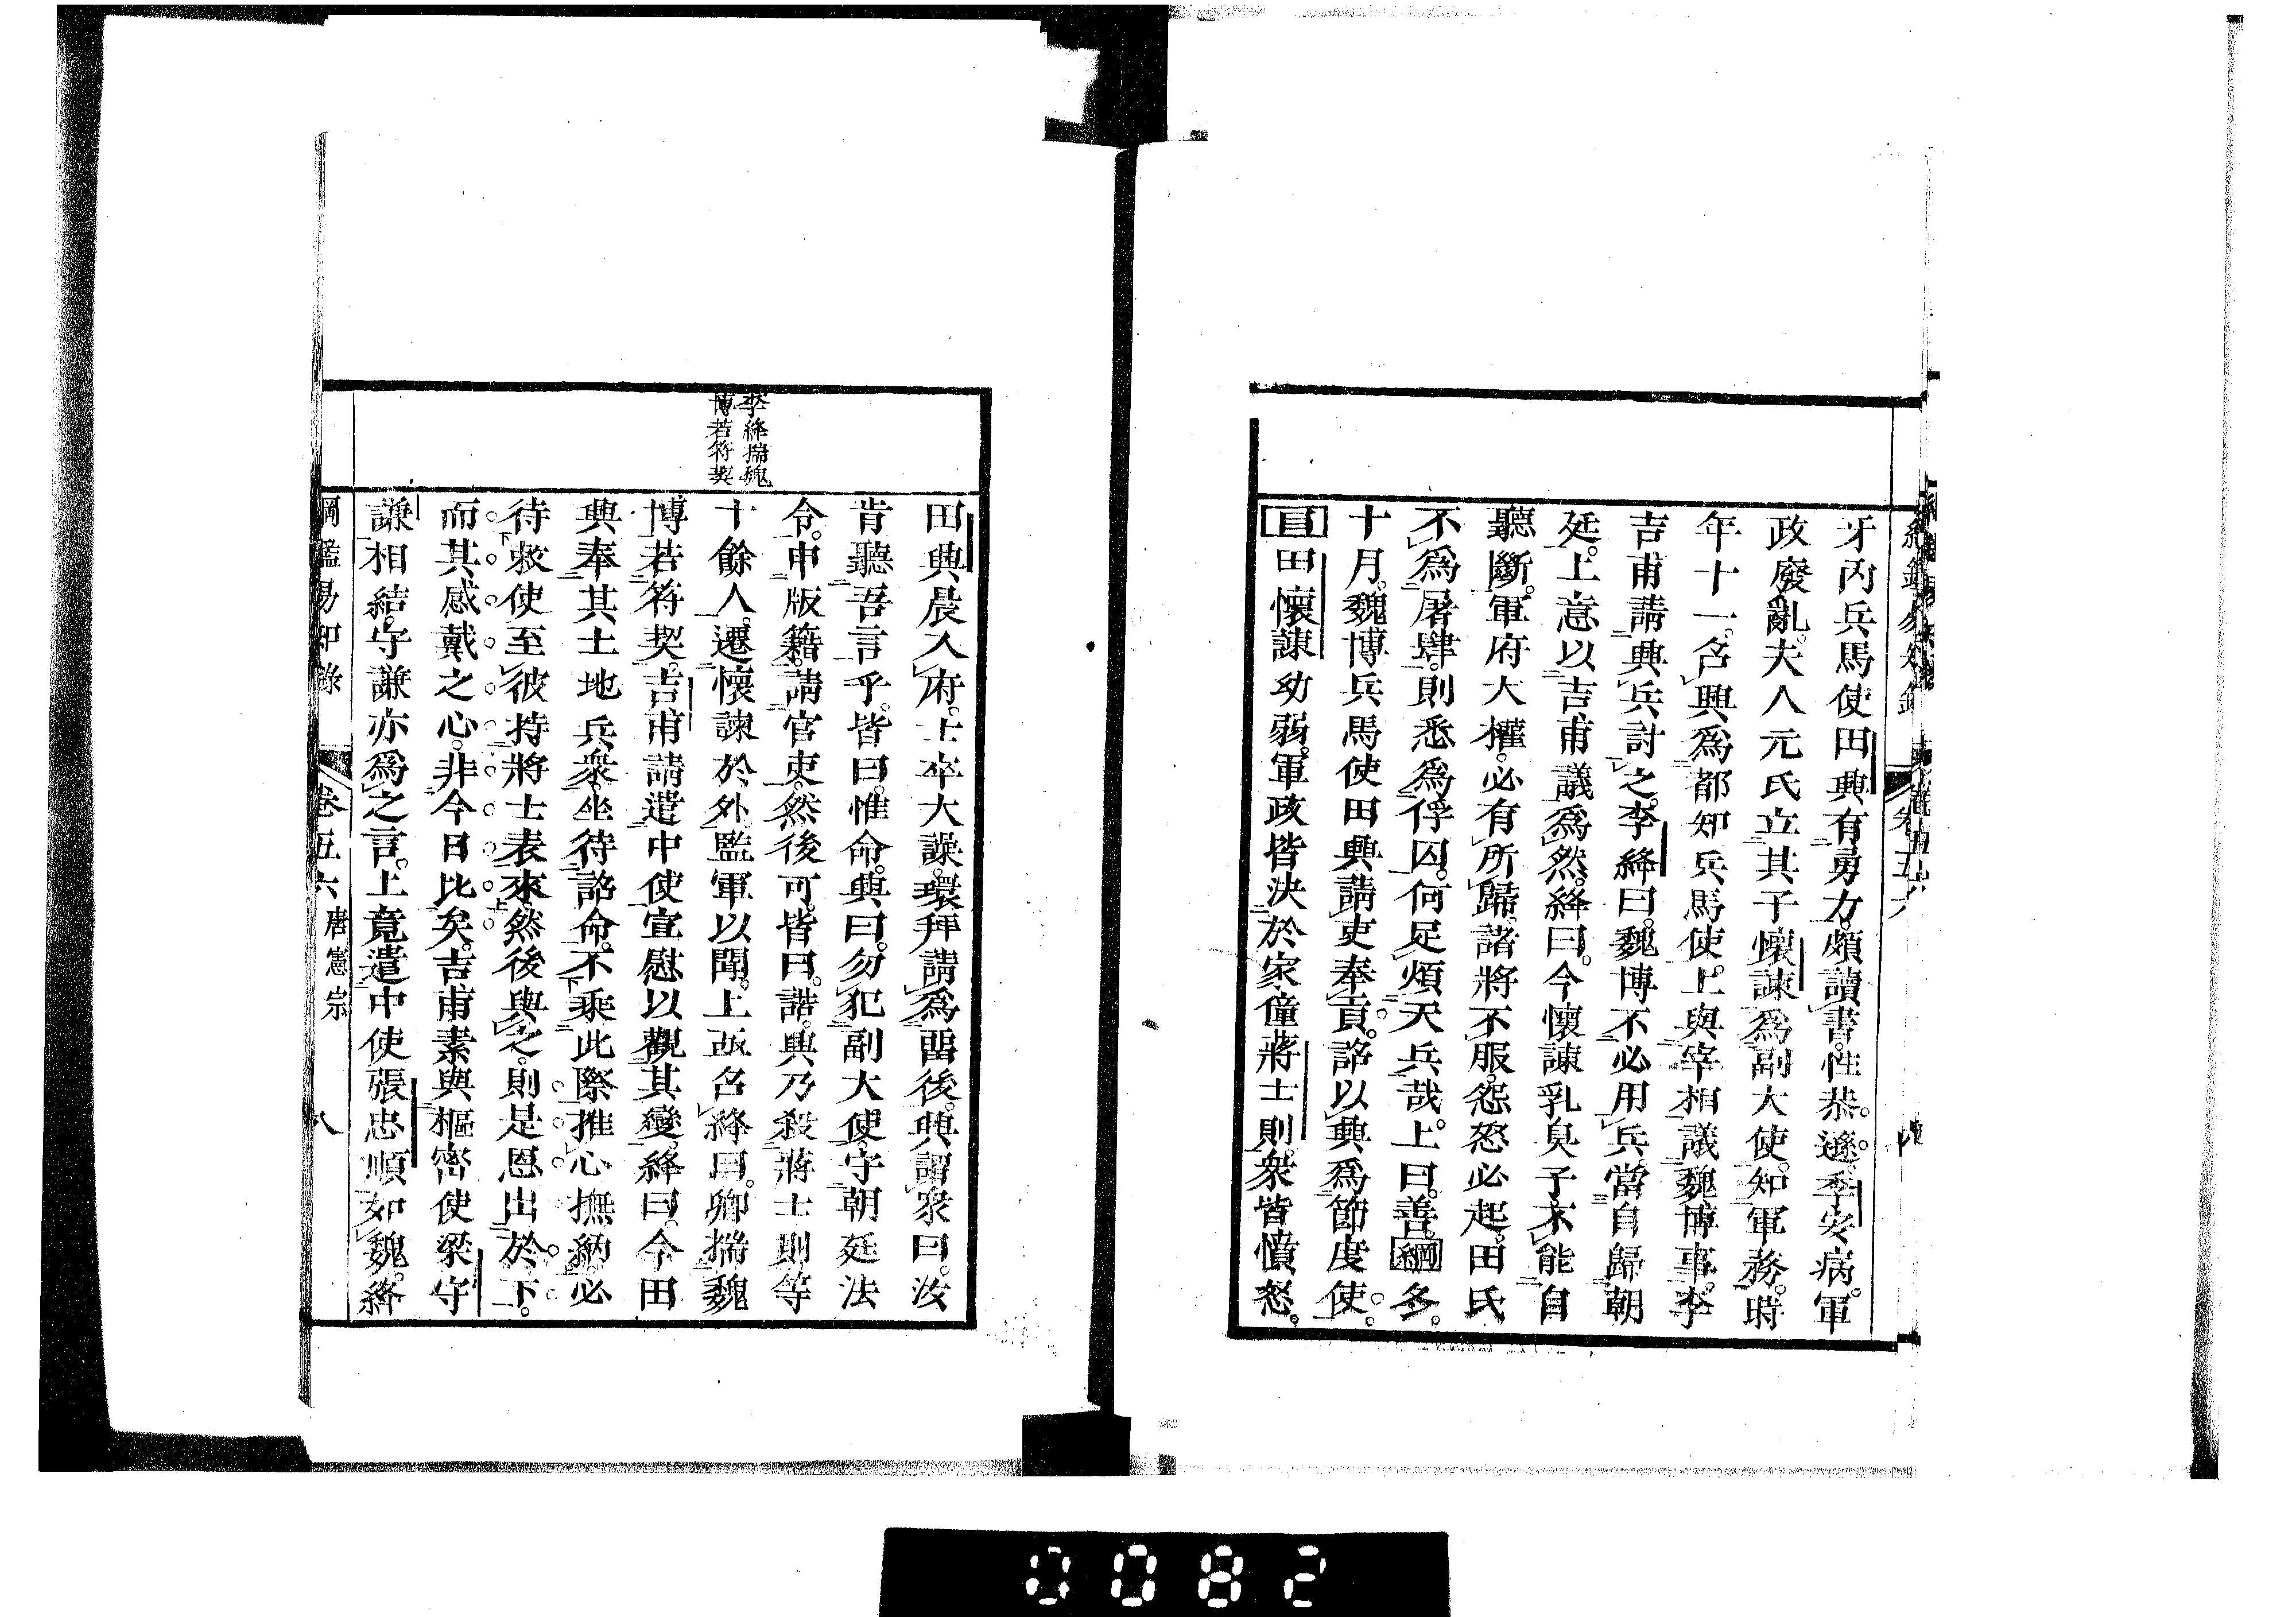 牙內兵馬使田興有勇力。頗讀書。性恭遜。季安病。軍
政廢亂。夫人元氏立其子懷諫爲副大使。知軍務。時
年十一。召興爲都知兵馬使。上與宰相議魏博事。李
吉甫請興兵討之。李絳曰。魏博不必用兵。當自歸朝
廷。上意以吉甫議爲然。絳曰。今懷諫乳臭子。不能自
聽斷。軍府大權。必有所歸。諸將不服。怨怒必起。田氏
不爲屠肆。則悉爲俘囚。何足煩天兵哉。上曰。善。綱冬。
十月。魏博兵馬使田興請吏奉貢。詔以興爲節度使。
目田懷諫幼弱。軍政皆決於家僮蔣士則。衆皆憤怒。
李絳揣魏
博若符契
田興晨入府。士卒大譟。環拜請爲畱後。興謂衆曰。汝
肯聽吾言乎。皆曰。惟命。興曰。勿犯副大使。守朝廷法
令。申版籍。請官吏。然後可。皆曰。諾。興乃殺蔣士則等
十餘人。遷懷諫於外。監軍以聞。上亟召絳曰。卿揣魏
博若符契。吉甫請遣中使宣慰以觀其變。絳曰。今田
興奉其土地兵衆。坐待詔命。不乘此際推心撫納。必
待敕使至彼。持將士表來。然後與之。則是恩出於下。
而其感戴之心。非今日比矣。吉甫素與樞密使梁守
謙相結。守謙亦爲之言。上竟遣中使張忠順如魏。絳
綱鑑易知錄 卷五六 唐憲宗 八